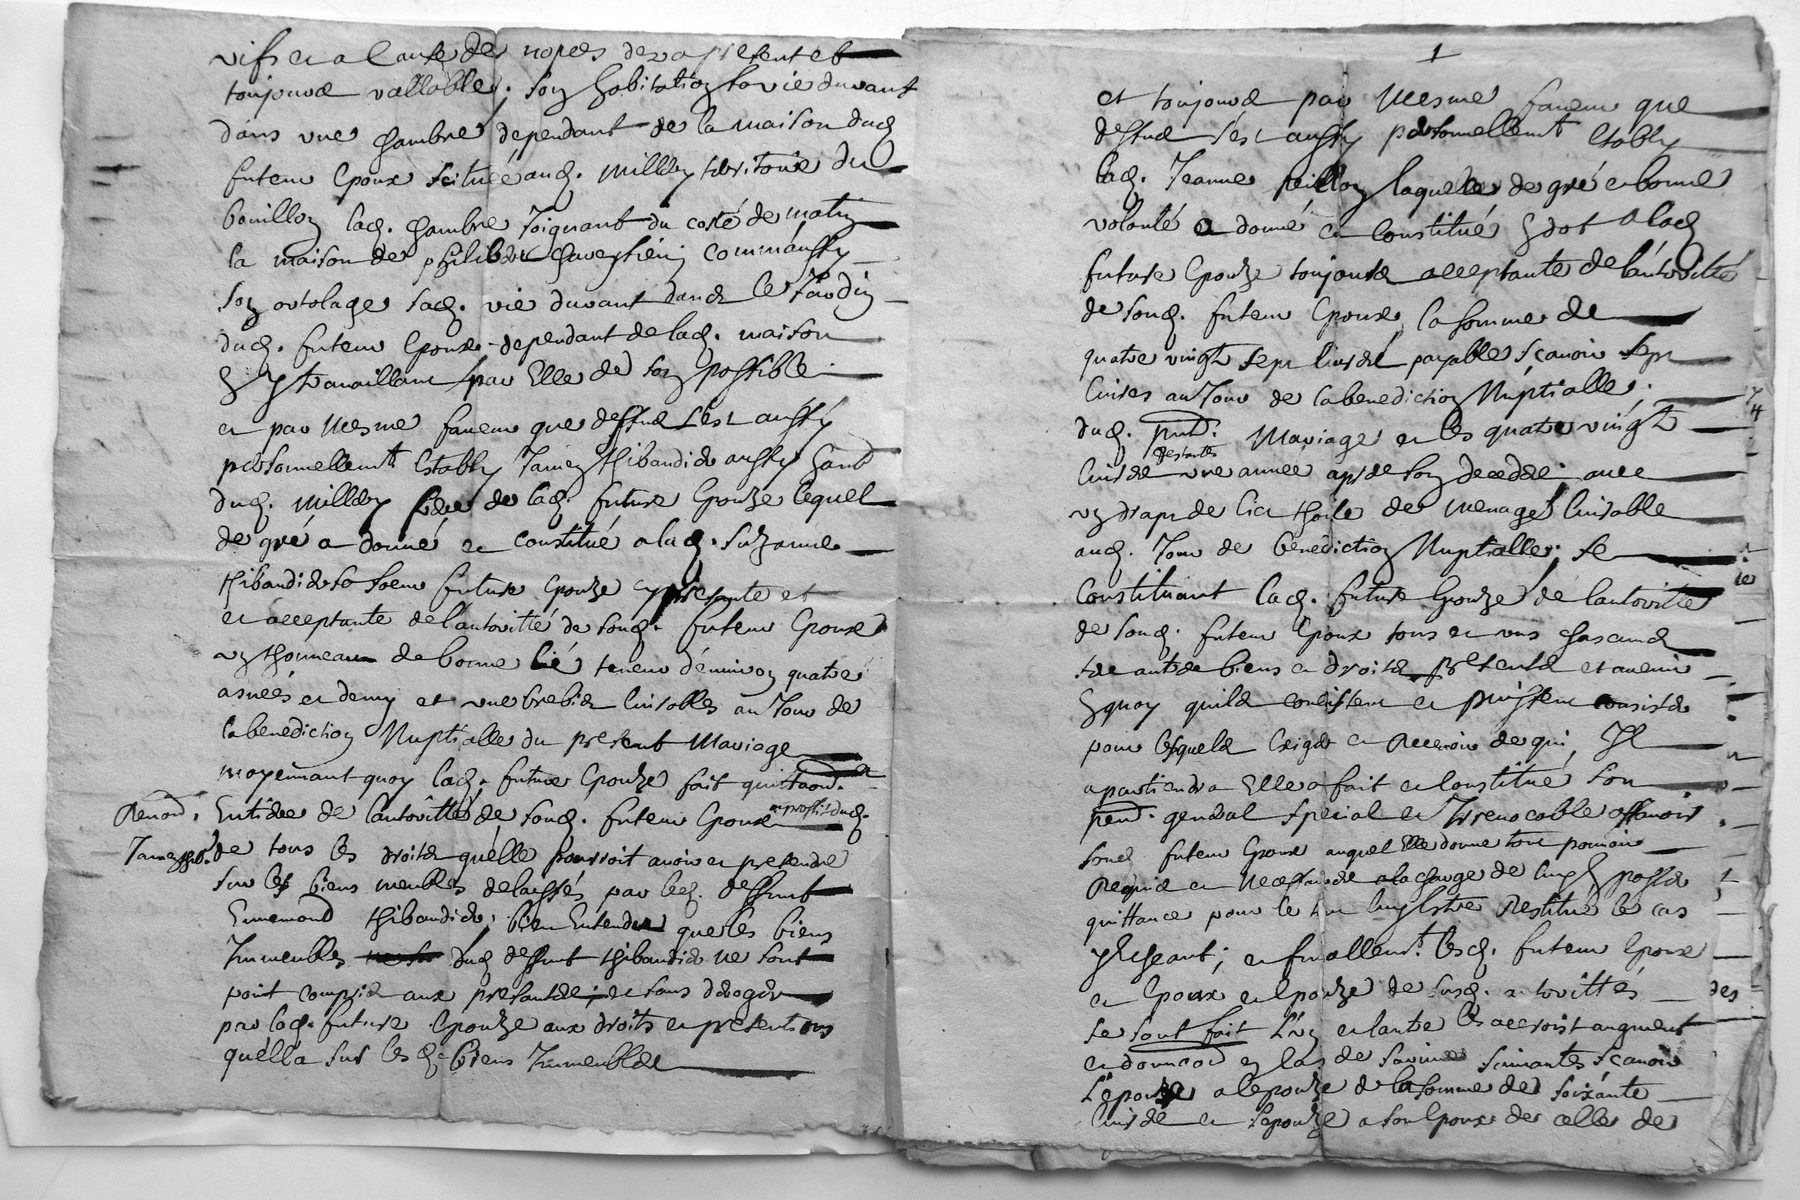 vifs et a cause de nopces des a present et
toujours vallable, son habitation sa vie durant
dans une chambre dependant de la maison dud.
futeur epoux scituée aud. Millery territoire du
bouillon lad. chambre Joignant du costé de matin
la maison de philibert comm'aussy
son ortolage sad. vie durant dans le Jardin
dud. futeur Epoux dependant de lad. maison
En y travaillant par Elle de son possible
et par mesme faveur que dessus s'est aussy
personnellemt. Estably Thibaudier aussy habt.
dud. Millery frere de lad. future Epouze lequel
de gré a donné et constitué a lad. Suzanne
Thibaudier sa soeur future Epouze cy presente et
et acceptante de l'autorité de sond. futeur Epoux
un thonneau de bonne lié teneur d'environ quatre
asnées et demy et une brebis livrables au Jour de
la benediction Nuptialle du present Mariage
moyennant quoy lad. future Epouze fait quittance et
Renon. Entiere de l'autorité de sond. futeur Epoux au proffit dud.
de tous les droits qu'elle pourroit avoir et pretendre
sur les biens meubles delaissés par led. deffunt
Ennemond Thibaudier, bien Entendu que les biens
Immeubles dud. deffunt Thibaudier ne sont
point compris aux presantes et sans deroger
par lad. future Epouze aux droits et pretentions
qu'ella sur les d. biens Immeubles
1
et toujours par mesme faveur que
dessus s'est aussy personnellemt. Estably
lad. Jeanne laquelle de gré et bonne
volonté a donné et constitué En dot a lad.
future Epouze toujours acceptante de l'autorité
de sond. futeur Epoux la somme de
quatre vingt sept livres payable sçavoir sept
livres au Jour de la benediction Nuptialle
dud. pnt. Mariage et les quatre vingt
restantes
livres une année apres son decedz, avec
un drap de lict thoile de menage livrable
aud. Jour de benediction Nuptialle, se
Constituant lad. future Epouze de l'autorité
de sond. futeur Epoux tous et uns chascuns
ses autres biens et droits presents et avenir
En quoy quils consistent et puissent consister
pour lesquels Exiger et Recevoir de qui Il
apartiendra Elle a fait et constitué son
general special et Irrevocable
sond. futeur Epoux auquel Elle donne tout pouvoir
Requis et necessaire a la charge de En passer
quittance pour le tout luy Estre Restitué le cas
y Escheant; et finallemt. lesd. futeur Epoux
et Epoux et Epouze de susd. autorittés
se sont fait L'un et lautre les accroist augment
et donnaon. en cas de suivantes, sçavoir
L'epoux a lepouze de la somme de soixante
livres et lepouze a son Epoux de celle de